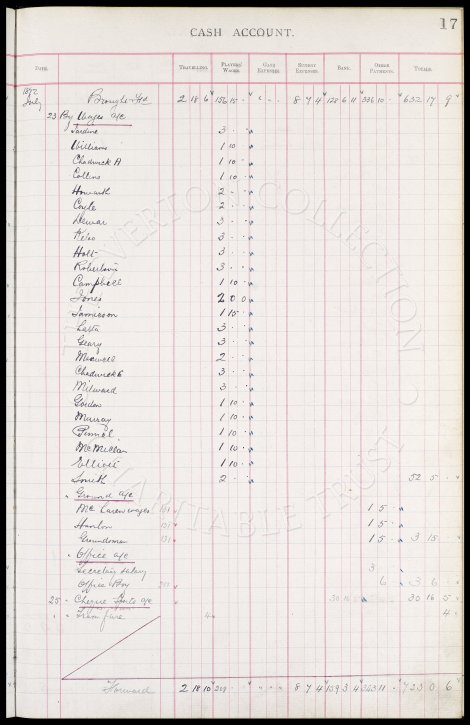 17
CASH ACCOUNT.
DATE. TRAVELLING. PLAYERS' WAGES. GATE EXPENSES. SUNDRY EXPENSES. BANK. OTHER PAYMENTS. TOTALS.
1892
July Brought Fd 2 18 6 156 15 8 7 4 128 6 11 336 10 632 17 9
23 By Wages a/c
Jardine 3
Williams 1 10
Chadwick A 1 10
Collins 1 10
Howarth 2
Coyle 2
Dewar 3
Kelso 3
Holt 3
Robertson 3
Campbell 1 10
Jones 2 0 0
Jamieson 1 15
Latta 3
Geary 3
Maxwell 2
Chadwick E 3
Milward 3
Gordon 1 10
Murray 1 10
1 10
McMillan 1 10
Elliott 1 10
Smith 2 52 5
" Ground a/c
McLaren wages 131 1 5
Hanlon 131 1 5
Groundsman 131 1 5 3 15
" Office a/c
Secretary salary 3
Office Boy 6 3 6
25 " Cheque a/c 30 16 30 16 5
" " Tram fare 4 4
Forward 2 18 10 209 8 7 4 159 3 4 343 11 723 0 6
THE EVERTON COLLECTION CHARITABLE TRUST